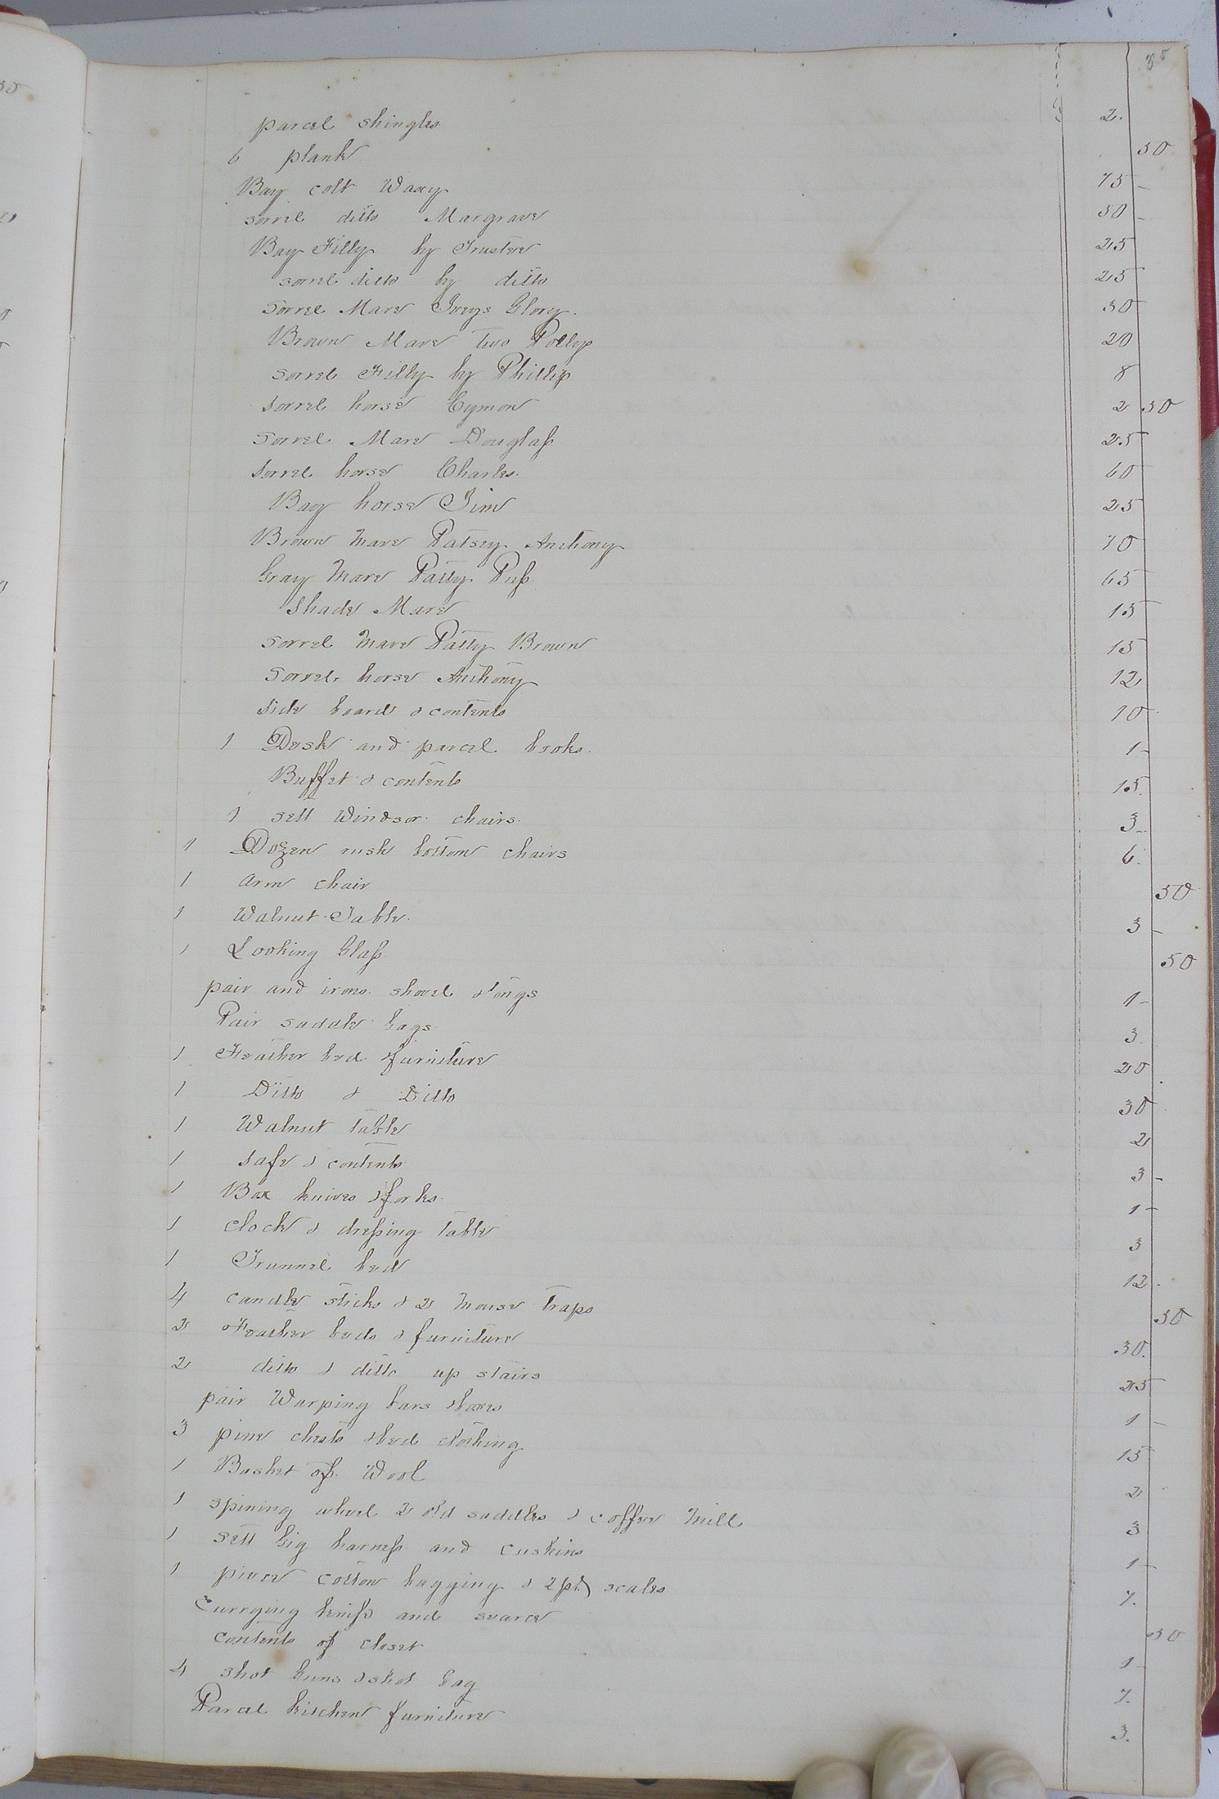 35
parcel shingles 2.
6 plank 50
Bay colt Waxy 75 -
sorrel ditto Margrave 50 -
Bay Filly by Trustee 25
sorrel ditto by ditto 25
Sorrel Mare Greys Glory. 30
Brown Mare Two Pollys 20
sorrel Filly by Phillip 8
Sorrel horse Cymon 2 50
Sorrel Mare Douglass 25
Sorrel horse Charles 60
Bay horse Jim 25
Brown Mare Patsey Anthony 70
Gray Mare Patty Puss 65
Shade Mare 15
sorrel Mare Patty Brown 15
Sorrel horse Anthony 12
Side board & contents 10
1 Desk and parcel books 1-
Buffet & contents 15.
1 sett Windsor chairs. 3-
1 Dozen rush bottom chairs 6.
1 arm chair 50
1 Walnut Table. 3 -
1 Looking Glass 50
pair and irons shovel & tongs 1-
Pair saddle bags 3
1 Feather bed & furniture 20
1 Ditto & Ditto 30
1 Walnut table 2
1 Safe & contents 3 -
1 Box knives & forks 1-
1 clock & dressing table 3
1 Trunnel bed 12.
4 candle sticks & 2 Mouse traps 50
2 Feather beds & furniture 30.
2 ditto & ditto up stairs 25
pair Warping bars & boxes 1 -
3 pine chests & bed clothing 15
1 Basket of Wool 2
1 spining wheel 2 old saddles & coffee Mill 3
1 Sett Gig harness and cushins 1-
1 piece cotton bagging & 2 pr scales 7.
Currying knife and searce 50
contents of closet 1
4 shot Guns & shot bag 7.
Parcel kitchen furniture 3.